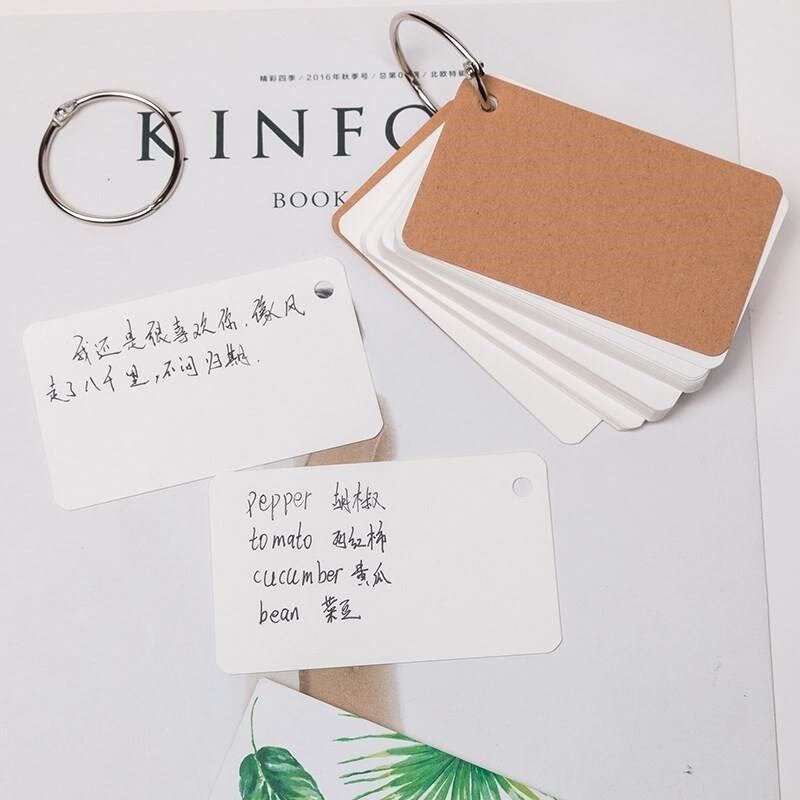 精彩四季/2016年秋季号/总第0
北欧特辑
KINFO
BOOK
我还是很喜欢你，像风
走了八千里，不问归期．
pepper 胡椒
tomato 西红柿
cucumber 黄瓜
bean 菜豆